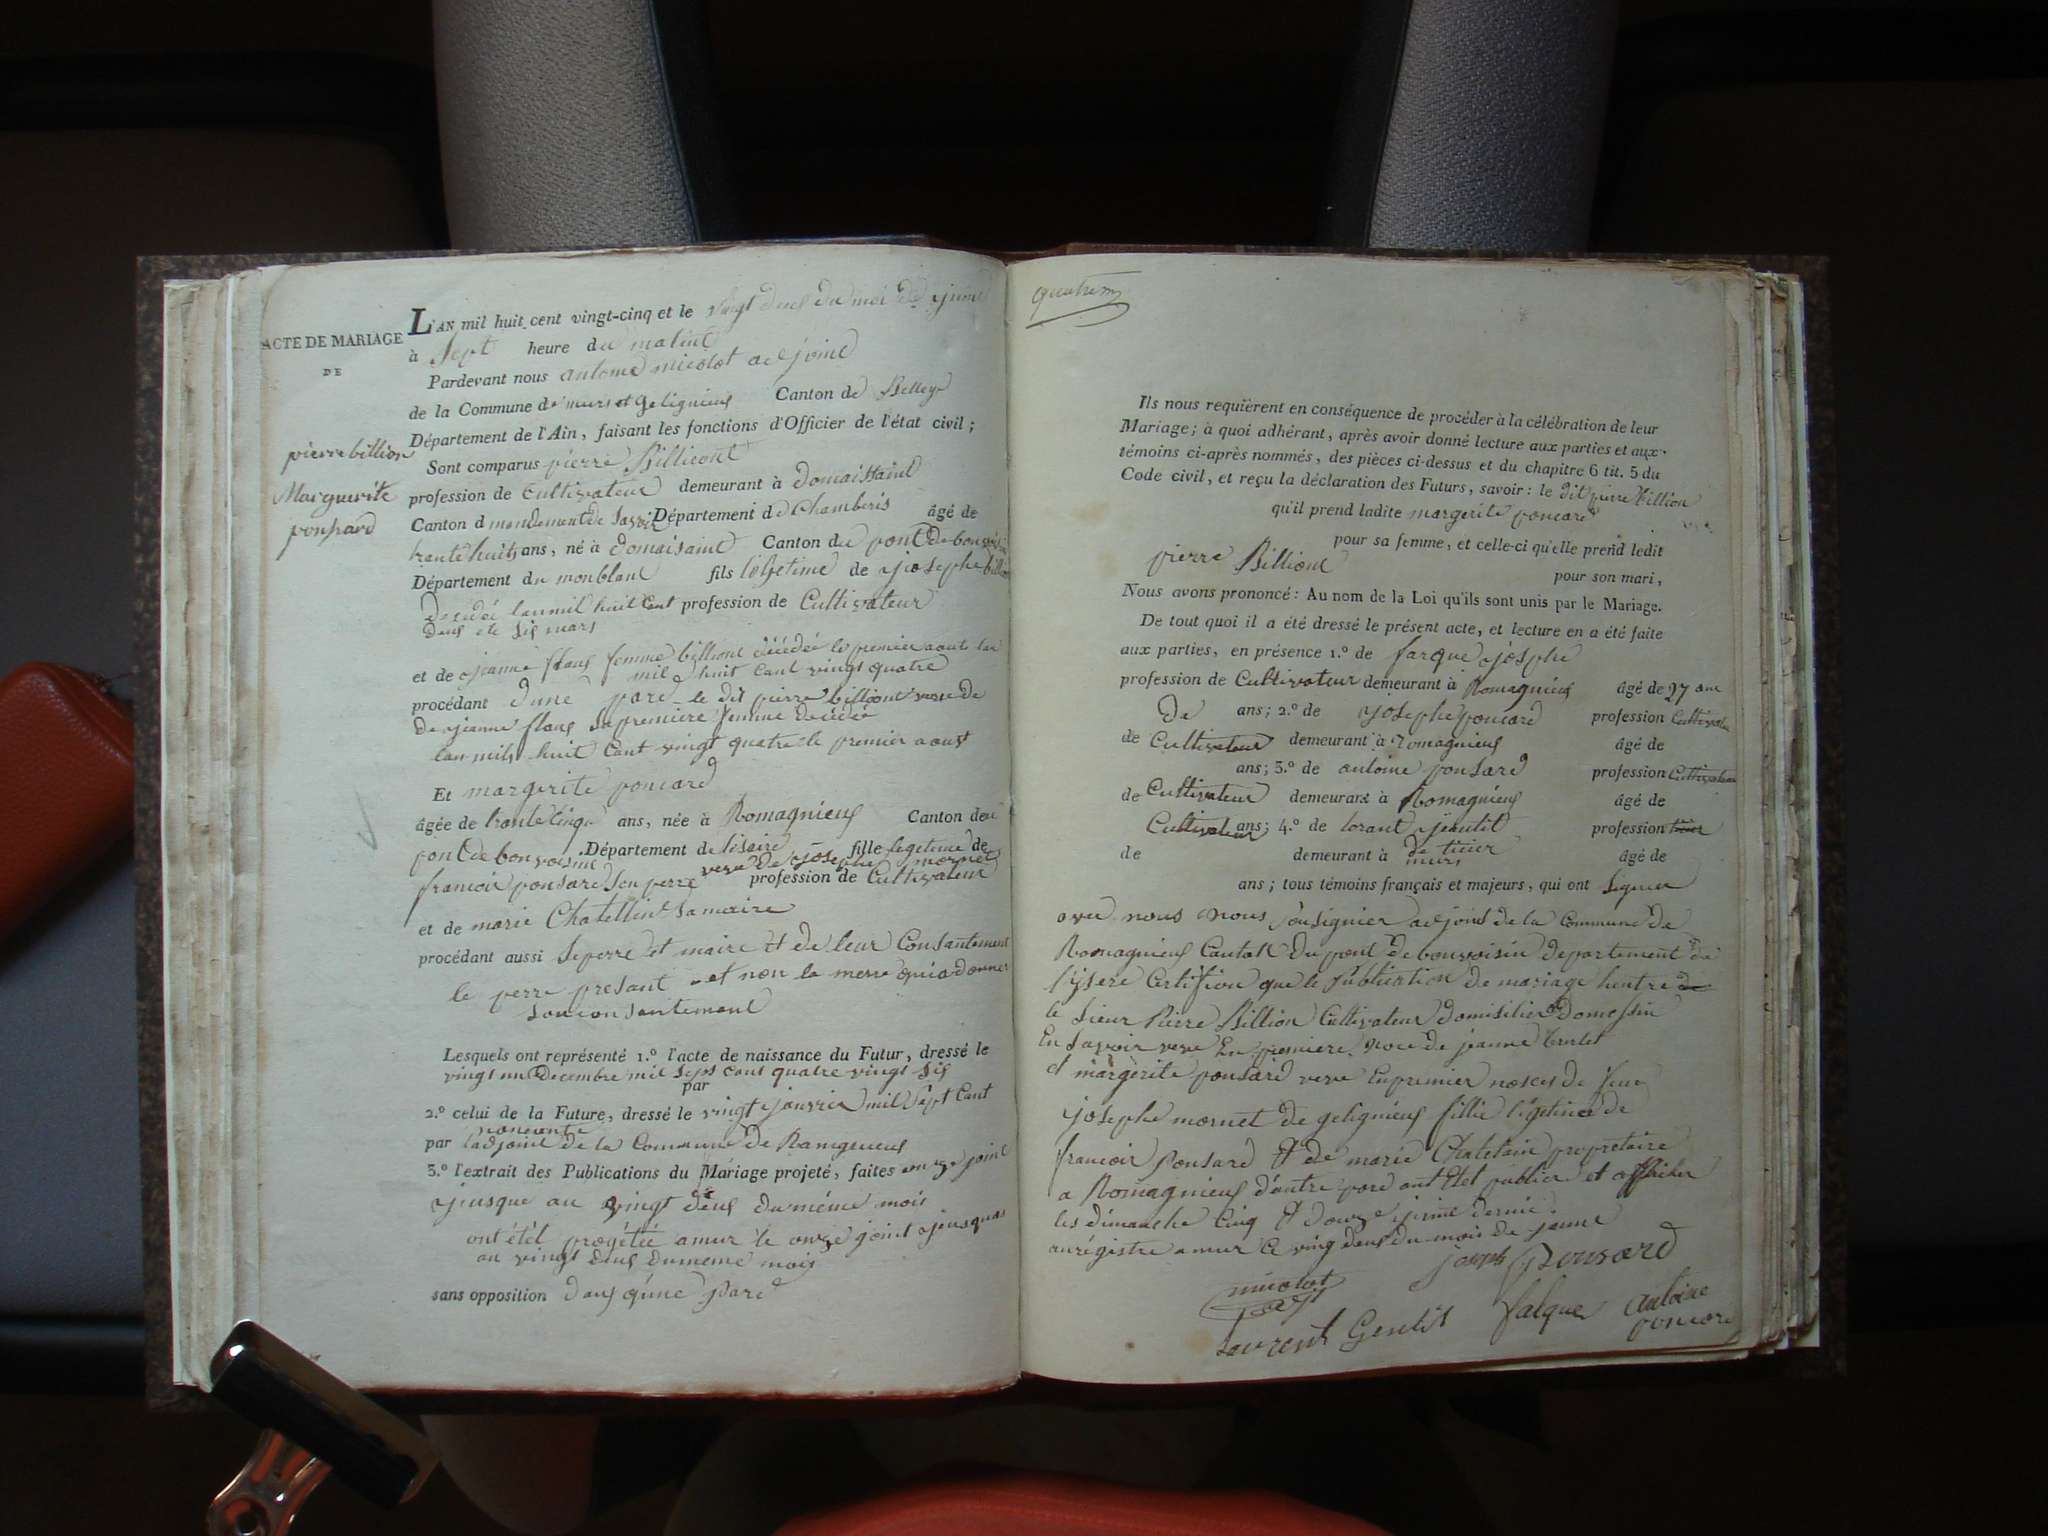 ACTE DE MARIAGE
DE
pierre billion
Marguerite
ponsard
L'AN mil huit cent vingt-cinq et le vingt deus du moi de juin
à Sept heure du matint
Pardevant nous antoine nicolot adjoint
de la Commune de murs et geligneus Canton de Belley
Département de l'Ain, faisant les fonctions d'Officier de l'état civil;
Sont comparus pierre Billiont
profession de Cultivateur demeurant à domaissaint
Canton d mendement de Département de Chamberis âgé de
trante huit ans, né à domaisaint Canton du pont de bonvoisin
Département du monblanc fils legetime de josephe billion
Decédé lan mil huit cent profession de Cultivateur
deus et le sis mars
et de jeanne flans femme billiont décédée le premier aoust lan
mil huit cant vingt quatre
procédant dune pard le dit pierre billiont veve de
de jeanne flans sa premiere femme decédé
lan mils huit cant vingt quatre le premier aoust
Et margerite poncard
âgée de trante cinq ans, née à Romagnieus Canton deu
pont de bonvoisint Département de lisaire fille legetime de
veve de josephe mornet
francoir ponsard son perre profession de Cultivateur
et de marie Chatellint sa maire
procédant aussi se perre et maire et de leur Consantement
le perre presant et non la merre qui a donner
son consantement
Lesquels ont représenté 1.º l'acte de naissance du Futur, dressé le
vingt un Decembre mil seps cant quatre vingt sis
par
2.º celui de la Future, dressé le vingt janvier mil sept cant
nonante
par ladjoint de la Commune de Ramgnieus
3.º l'extrait des Publications du Mariage projeté, faites onze joint
jusque au vingt deus du méme mois
ont étét progétée a mur le onze joint ajeusquas
au vingt deus du meme mois
sans opposition daus qune pard
quatrem
Ils nous requièrent en conséquence de procéder à la célébration de leur
Mariage; à quoi adhérant, après avoir donné lecture aux parties et aux
témoins ci-après nommés, des pièces ci-dessus et du chapitre 6 tit. 5 du
Code civil, et reçu la déclaration des Futurs, savoir: le dit pierre billion
qu'il prend ladite margerite poncard
pour sa femme, et celle-ci qu'elle prend ledit
pierre Billiont
pour son mari,
Nous avons prononcé: Au nom de la Loi qu'ils sont unis par le Mariage.
De tout quoi il a été dressé le présent acte, et lecture en a été faite
aux parties, en présence 1.º de farque josphe
profession de Cultivateur demeurant à Romagnieus âgé de 27 ans
De ans; 2.º de josephe poncard profession Cultivateur
de Cultivateur demeurant à romagnieus âgé de
ans; 3.º de antoine ponsard profession Cultivateur
de Cultivateur demeurant à Romagnieus âgé de
Cultivateur ans; 4.º de lorant jeantit profession
de demeurant à murs âgé de
ans; tous témoins français et majeurs, qui ont signer
avec nous nous sousignier adjoint de la Commune de
Romagnieus Canton du pont de bonvoisin departement de
l'ysere Certifion que le publication de mariage hentre
le sieur Pierre Billion Cultivateur domisilier a domessin
En savoir veve En premiere noce de jeanne
et margerite ponsard veve En premier nosces de feue
josephe mornet de geligneus fillie légetime de
francoir ponsard et de marie Chatelain propretaire
a Romagnieus d'autre pard ont étet publier et afficher
les dimanche Cinq et douze juint dernié.
anrégistre a mur le ving deus du mois de jeune
nicolot
joseph ponsard
Laurent Gentit falque antoine
poncard